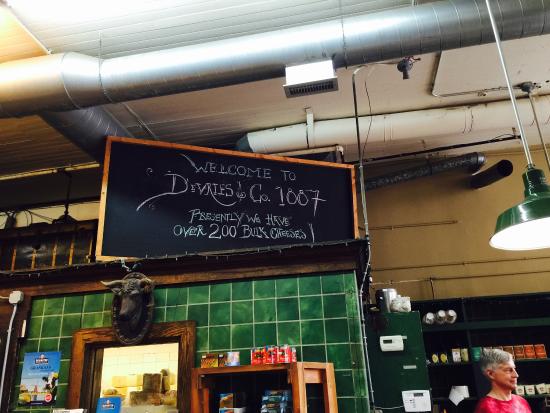 WELCOME TO
DEVRIES & Co. 1887
PRESENTLY WE HAVE
OVER 200 BULK CHEESES!